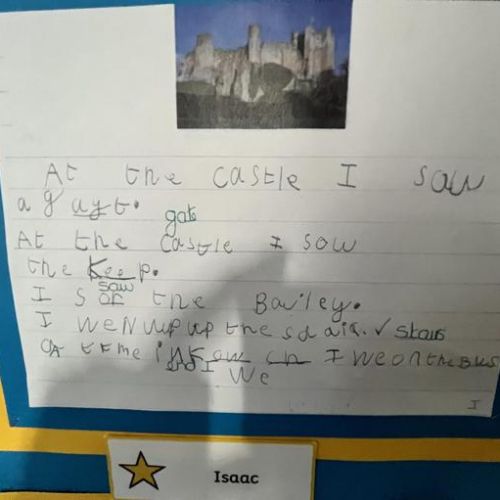 At the castle I saw
a gayt.
gate
At the castle I saw
the Keep.
saw
I sor the Bailey.
I weNup up the sdair. ✓ stairs
I we on the Bus
and I we
I
Isaac